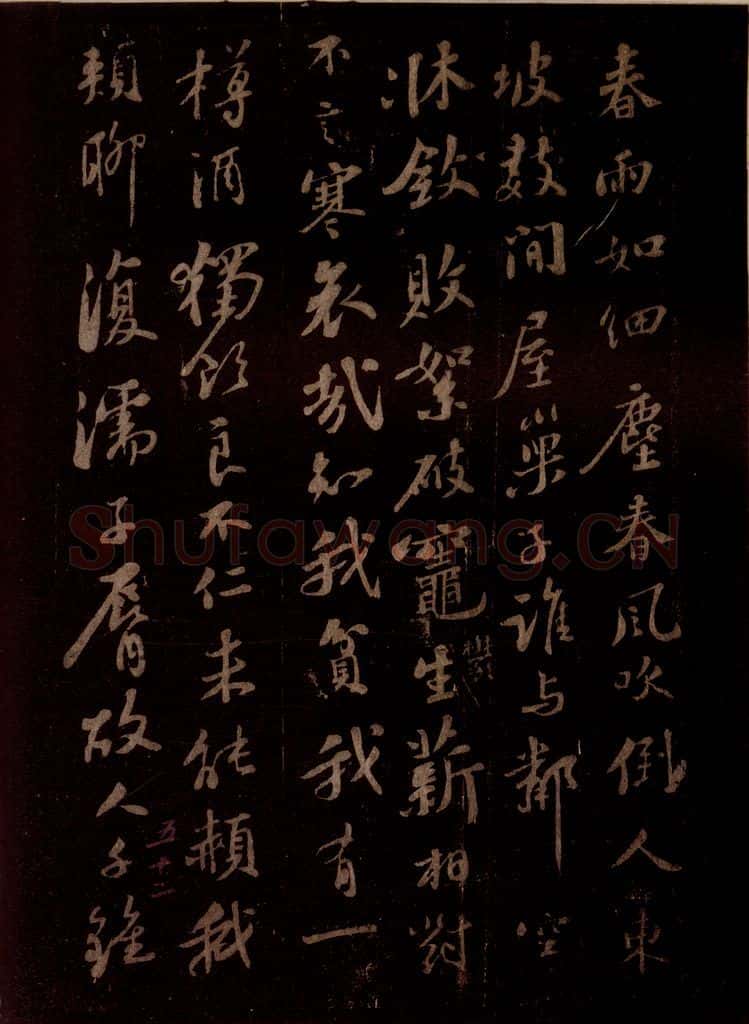 春雨如細塵春風吹倒人東
坡數間屋巢子誰与鄰空
牀斂敗絮破竈欝生薪相對
不言寒哀哉知我貧我有一
樽酒獨飲良不仁未能頳我
頰聊復濡子脣故人千鍾
五十二
Shufawang.CN